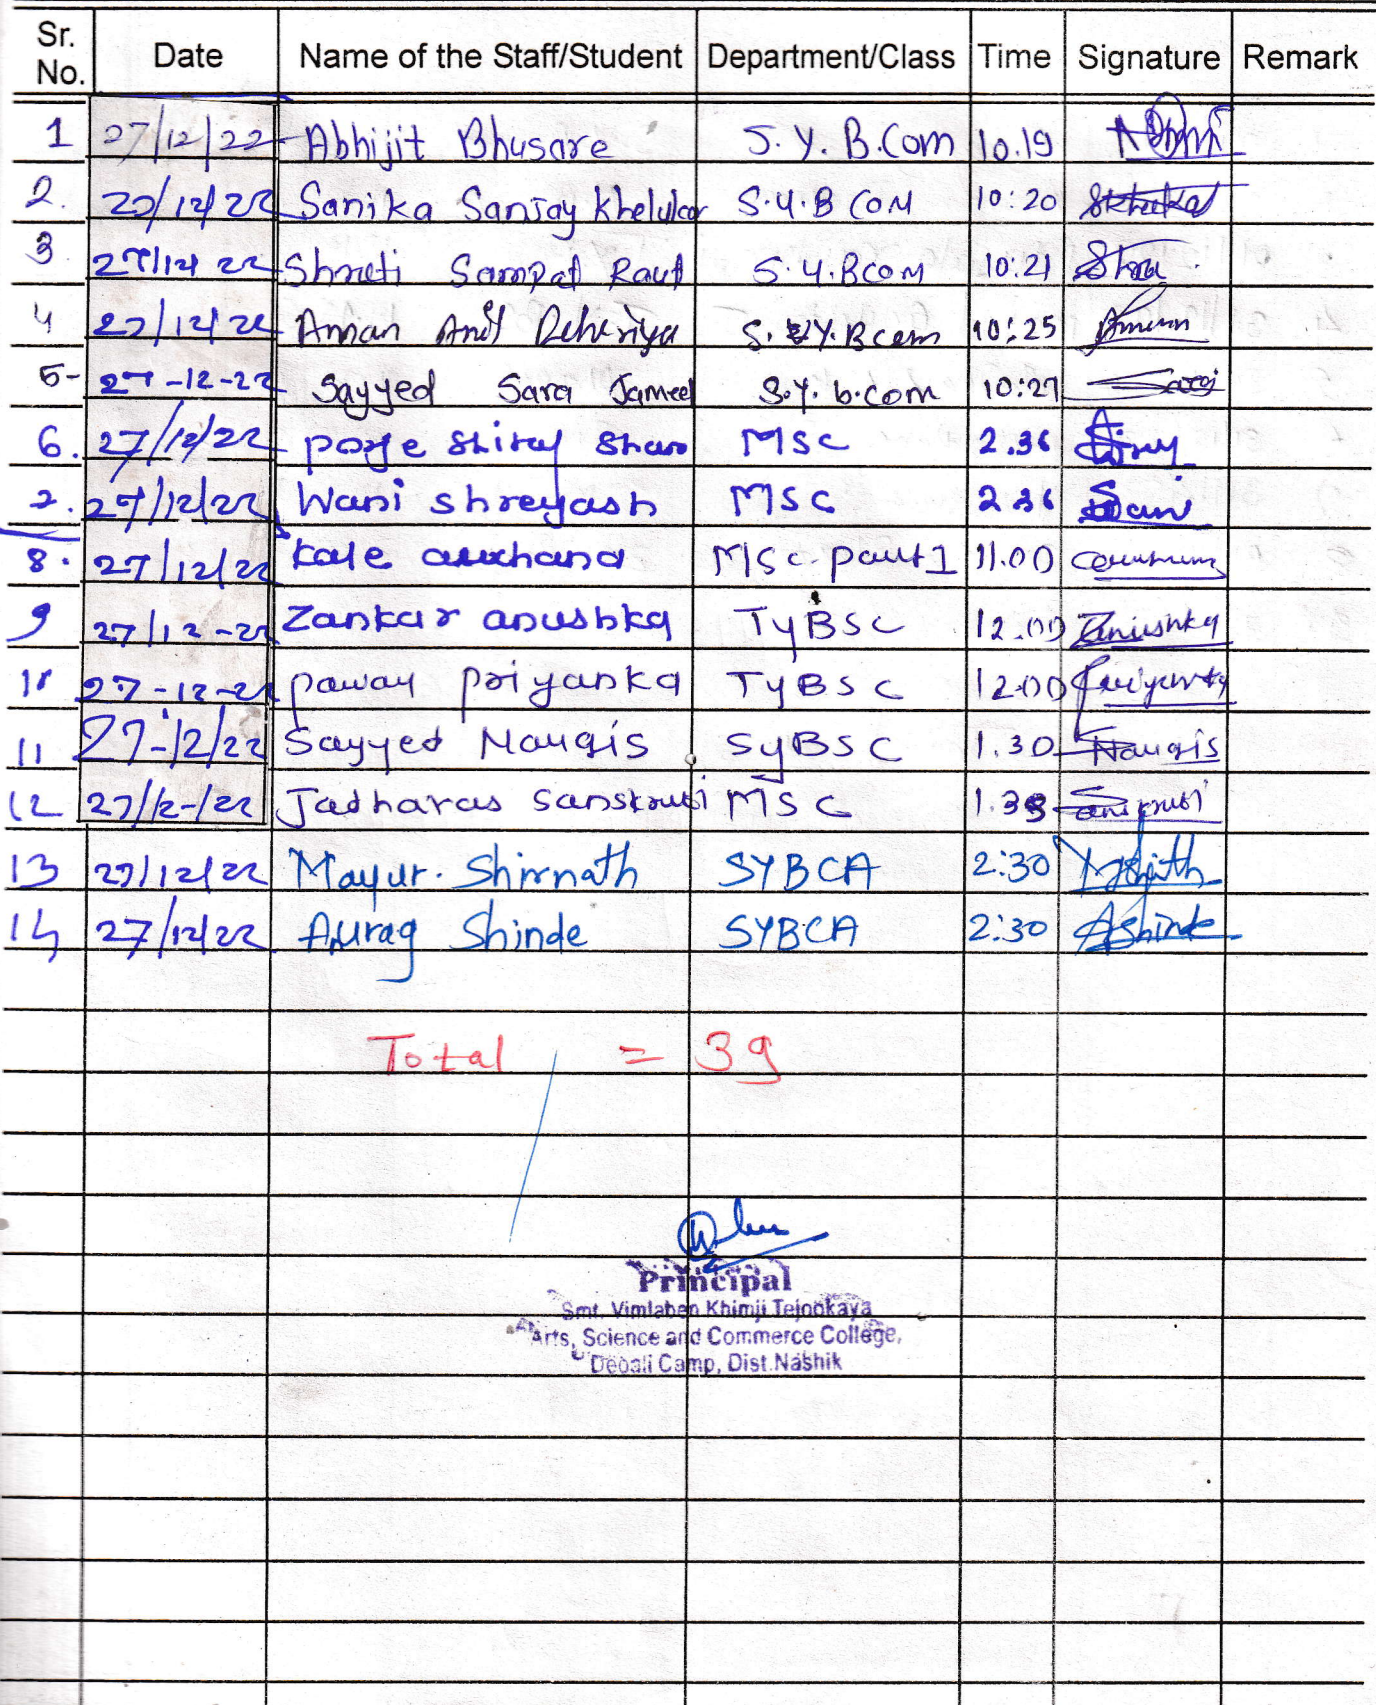 Sr. No. Date Name of the Staff/Student Department/Class Time Signature Remark
1 27/12/22 Abhijit Bhusare S.Y. B.Com 10.19
2. 27/12/22 Sanika Sanjay Khelukar S.Y.B COM 10:20
3 27/12/22 Shruti Sampat Raut S.Y.BCOM 10:21 Shru
4 27/12/22 Aman Anil Deheriya S.Y.Bcom 10:25 Aman
5- 27-12-22 Sayyed Sara Jameel S.Y. b.com 10:27
6. 27/12/22 Poye Shiraj Sharo MSC 2.36
7. 27/12/22 Wani shreyash MSC 2 36
8. 27/12/22 Kale MSc Part 1 11.00
9 27/12-22 Zankar anushka TyBSc 12.00 Anushka
10 27-12-22 Pawar Priyanka TyBSc 12.00 Priyanka
11 27-12/22 Sayyed Nargis SyBSC 1.30 Nargis
12 27/12/22 Jadharas Sanskruti MSC 1.33 Sanskruti
13 27/12/22 Mayur. Shirnath SYBCA 2:30
14 27/12/22 Anurag Shinde SYBCA 2:30 AShinde
Total = 39
Principal
Smt. Vimlaben Khimji Tejookaya
Arts, Science and Commerce College,
Deoali Camp, Dist.Nashik